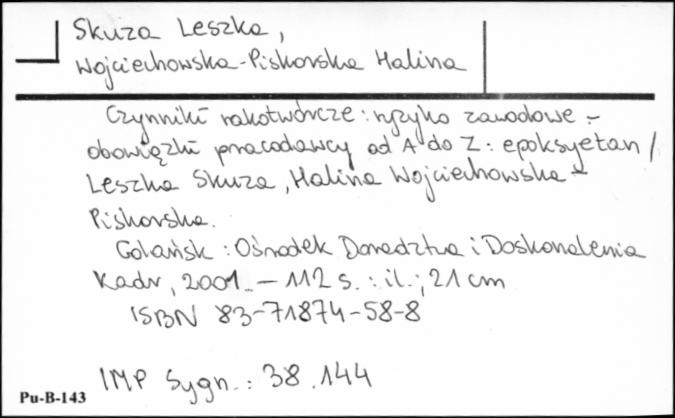 Skuza Leszka,
Wojciechowska-Piskorska Halina
Czynniki rakotwórcze: ryzyko zawodowe -
obowiązki pracodawcy od A do Z: epoksyetan /
Leszka Skuza, Halina Wojciechowska -
Piskorska.
Gdańsk : Ośrodek Doradztwa i Doskonalenia
Kadr, 2001. - 112 s. : il.; 21 cm
ISBN 83-71874-58-8
IMP Sygn.: 38.144
Pu-B-143